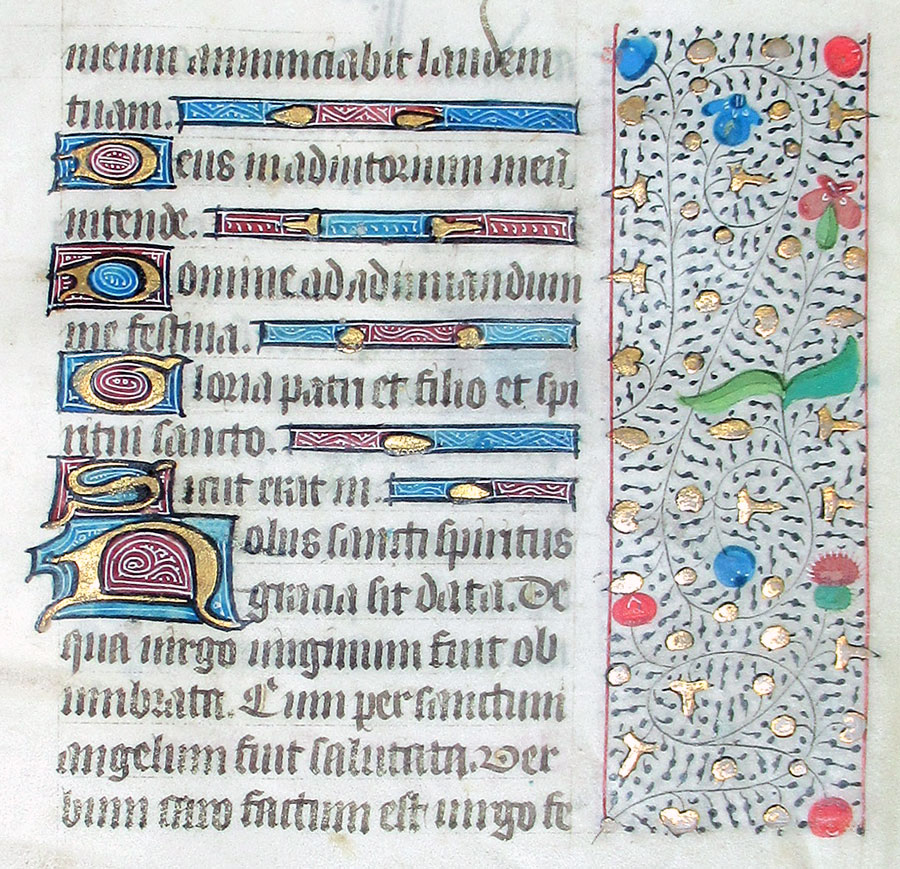 meum annunciabit laudem
tuam.
Deus in adiutorium meū
intende.
Domine ad adiuuandum
me festina.
Gloria patri et filio et spi
ritui sancto.
Sicut erat in.
Nobis sancti spiritus
gracia sit data. De
qua uirgo uirginum fuit ob
umbrata. Cum per sanctum
angelum fuit salutata. Ver
bum caro factum est uirgo fe